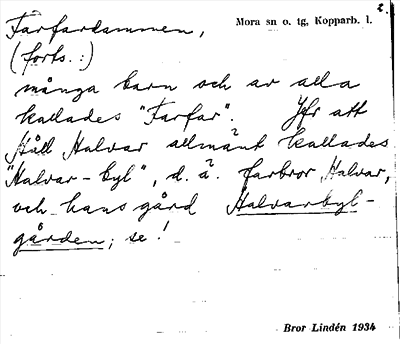 2.
Farfardammen,
Mora sn o. tg, Kopparb. l.
(forts.:)
många barn och av alla
kallades "Farfar". Jfr att
Håll Halvar allmänt kallades
"Halvar-byl", d. ä. farbror Halvar,
och hans gård Halvarbyl-
gården; se!
Bror Lindén 1934